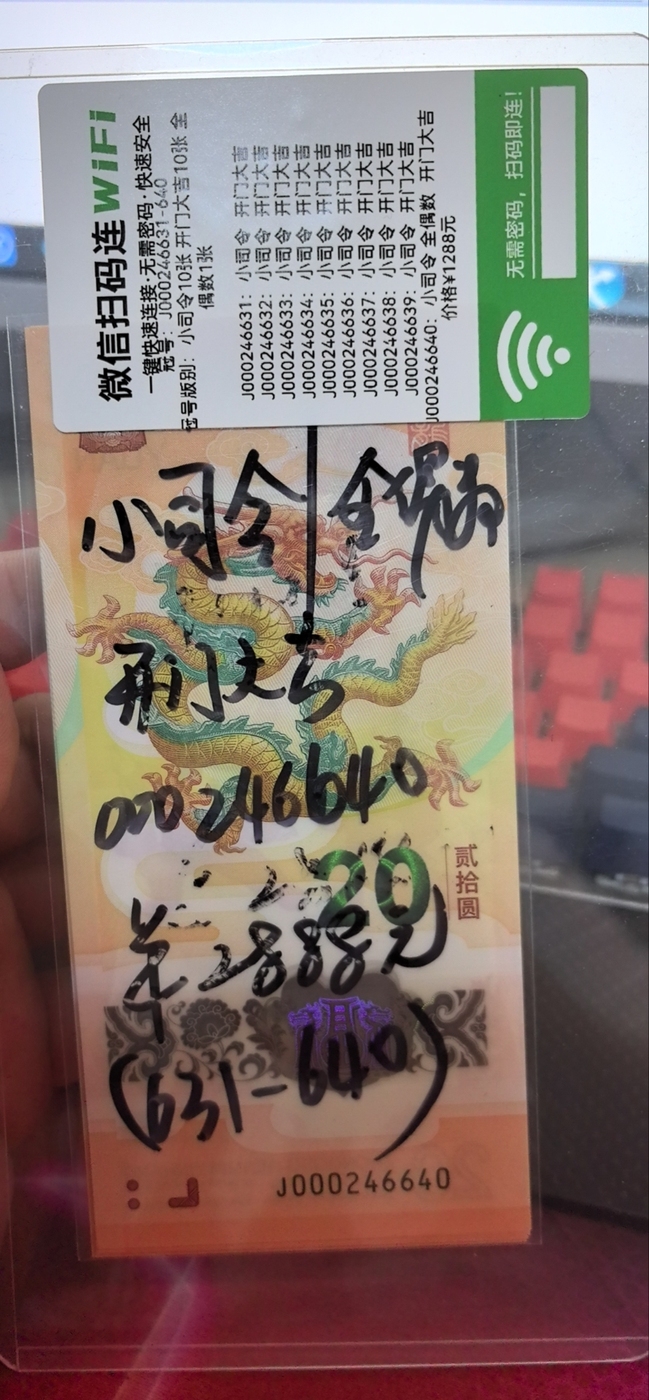 微信扫码连WiFi
一键快速连接·无需密码·快速安全
冠号: J000246631-640
冠号版别: 小司令10张 开门大吉10张 全
偶数1张
J000246631: 小司令 开门大吉
J000246632: 小司令 开门大吉
J000246633: 小司令 开门大吉
J000246634: 小司令 开门大吉
J000246635: 小司令 开门大吉
J000246636: 小司令 开门大吉
J000246637: 小司令 开门大吉
J000246638: 小司令 开门大吉
J000246639: 小司令 开门大吉
J000246640: 小司令 全偶数 开门大吉
价格¥1288元
无需密码，扫码即连!
小司令 全偶
开门大吉
000246640
2888元
(631-640)
20
贰拾圆
J000246640